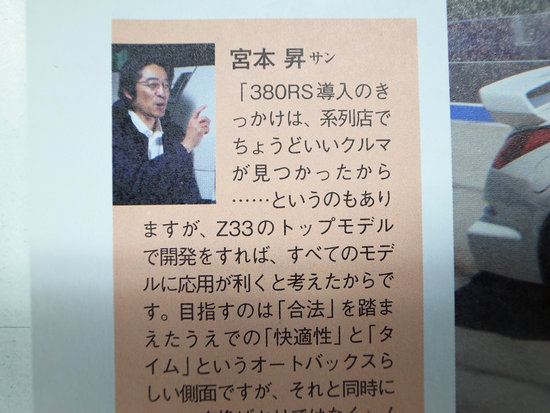 宮本 昇サン
「380RS導入のき
っかけは、系列店で
ちょうどいいクルマ
が見つかったから
……というのもあり
ますが、Z33のトップモデル
で開発をすれば、すべてのモデ
ルに応用が利くと考えたからで
す。目指すのは「合法」を踏ま
えたうえでの「快適性」と「タ
イム」というオートバックスら
しい側面ですが、それと同時に